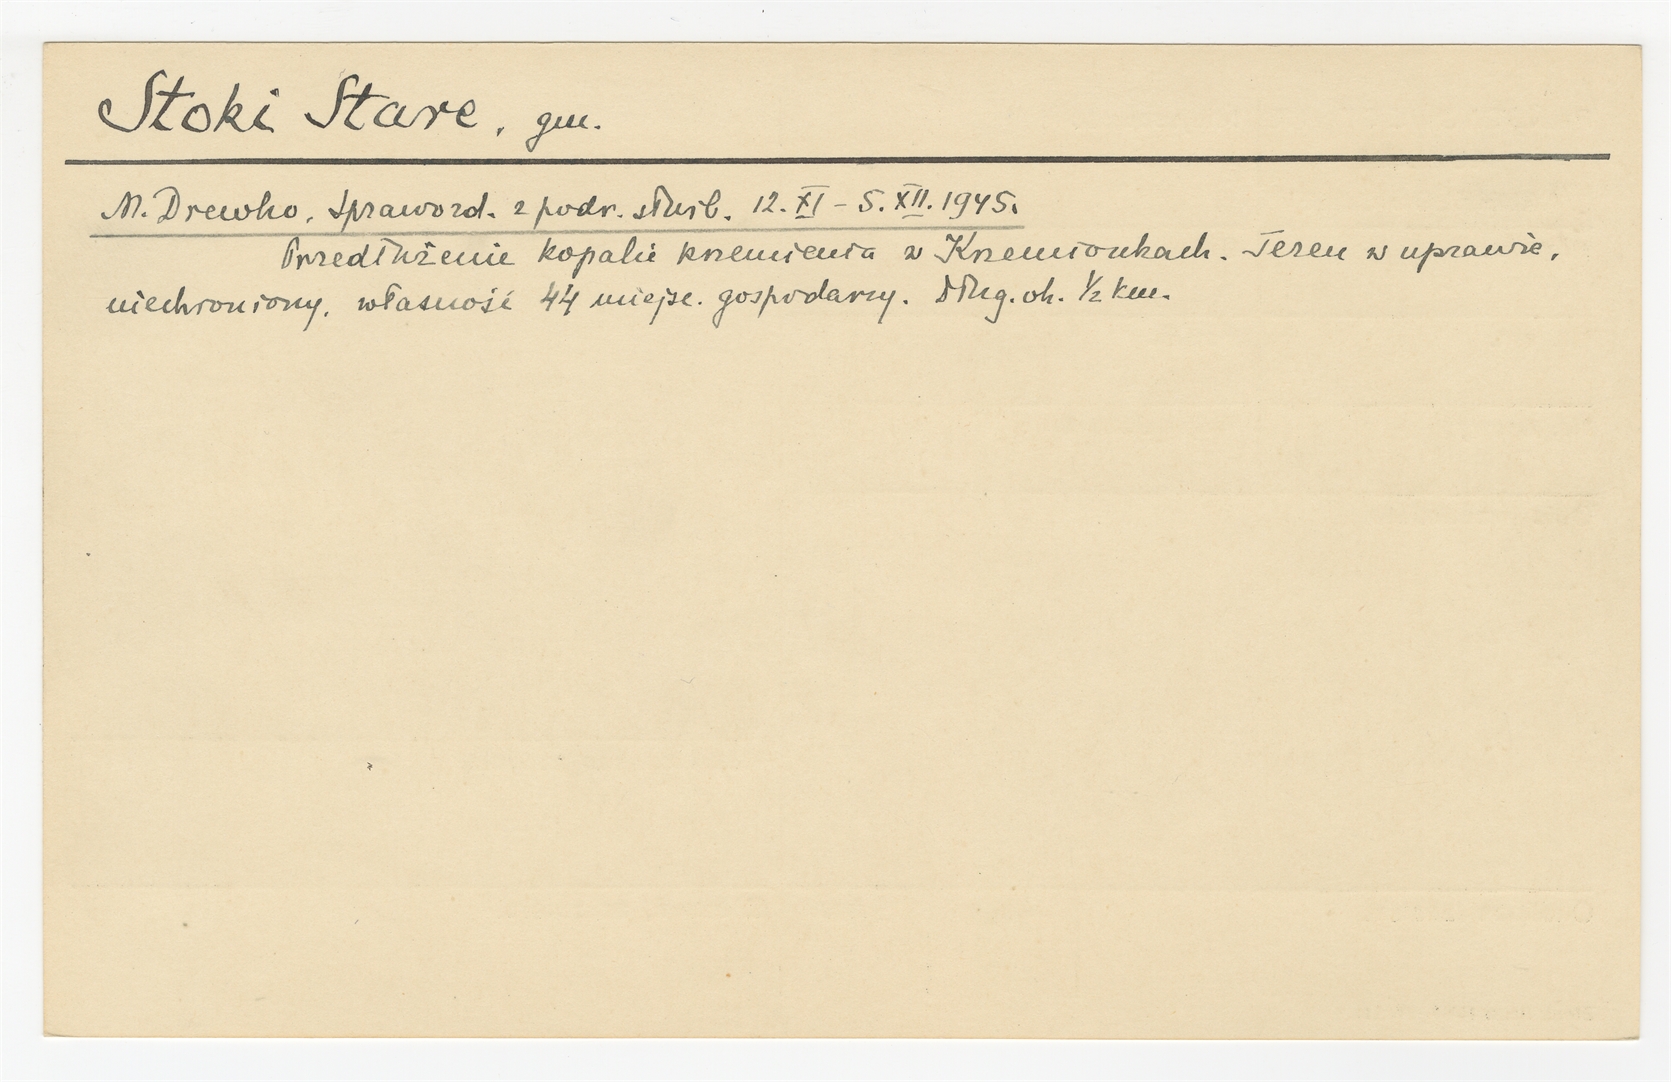 Stoki Stare, gm.
M. Drewko, Sprawozd. z podr. służb. 12.XI – 5.XII.1945.
Przedłużenie kopalń krzemienia w Krzemionkach. Teren w uprawie,
niechroniony, własność 44 miejsc. gospodarzy. Dług. ok. ½ km.